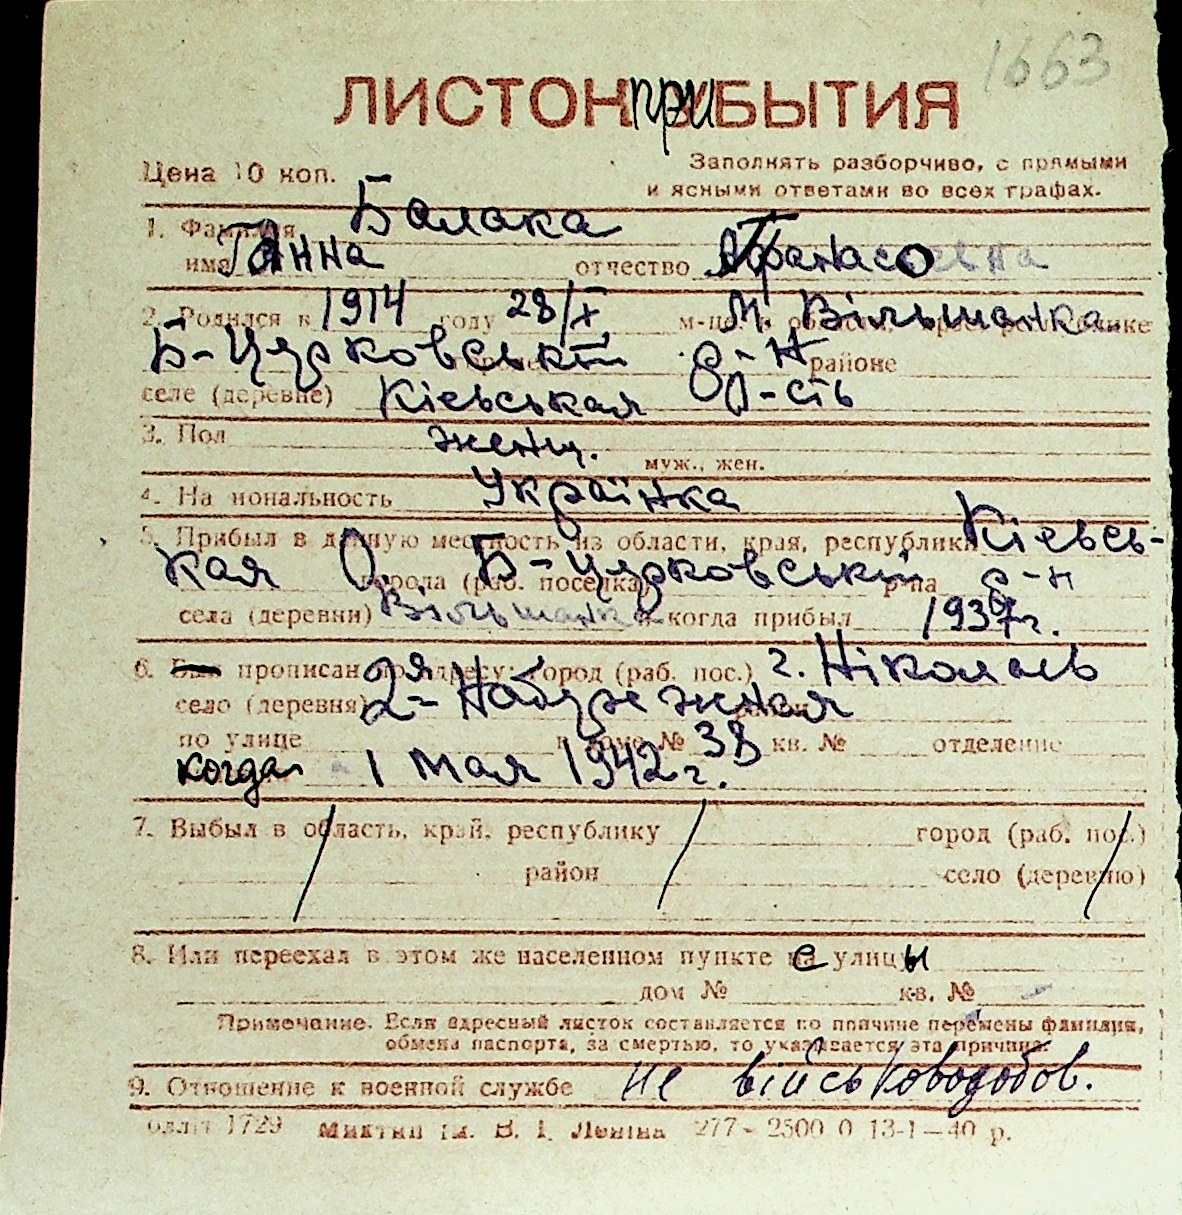 1663
ЛИСТОК ПРИБЫТИЯ
Цена 10 коп. Заполнять разборчиво, с прямыми
и ясными ответами во всех графах.
1. Фамилия Балака
имя Ганна отчество Афанасовна
2. Родился в 1914 году 28/X м. Вільшанка
Б-Церковський р-н районе
селе (деревне) Кіевськая обл-сть
3. Пол женщ.
муж., жен.
4. Национальность Українка
5. Прибыл в данную местность из области, края, республики Кіевсь-
кая О. города (раб. поселка) Б-Церковський р-на р-н
села (деревни) Вільшанка и когда прибыл 1937г.
6. прописан по адресу: город (раб. пос.) г. Ніколаєв
село (деревня) 2-я Набережная
по улице в доме № 38 кв. № отделение
когда 1 мая 1942 г.
7. Выбыл в область, край, республику город (раб. пос.)
район село (деревню)
8. Или переехал в этом же населенном пункте с улицы
дом № кв. №
Примечание. Если адресный листок составляется по причине перемены фамилии,
обмена паспорта, за смертью, то указывается эта причина.
9. Отношение к военной службе не військовозобов.
1729 Миктип ім. В. І. Леніна 277-2500.0 13-1-40 р.